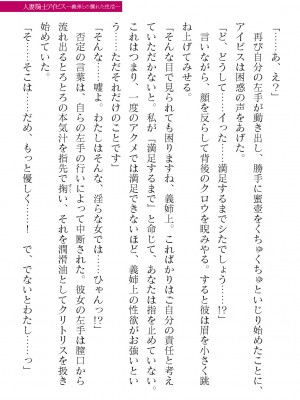 人妻騎士アイビス ～義弟との爛れた性活～
「……あ、え？」
再び自分の左手が動き出し、勝手に蜜壺をくちゅくちゅといじり始めたことに、
アイビスは困惑の声をあげた。
「ど、どうして……イった……満足するまでシたでしょう……!?」
言いながら、顔を反らして背後のクロウを睨みやる。すると彼は眉を小さく跳
ね上げてみせる。
「そんな目で見られても困りますね、義姉上。こればかりはご自分の責任と考え
ていただかないと。私が「満足するまで」と命じて、あなたは指を止めていない。
これはつまり、一度のアクメでは満足できないほど、義姉上の性欲がお強いとい
う……ただそれだけのことです」
「そんな……嘘よ。わたしはそんな、淫らな女では……ひゃんっ!?」
否定の言葉は、自らの左手の行いによって中断された。彼女の左手は膣口から
流れ出るとろとろの本気汁を指先で掬い、それを潤滑油としてクリトリスを扱き
始めていた。
「そ、そこは……だめ、もっと優しく……！　で、でないとわたし……っ」